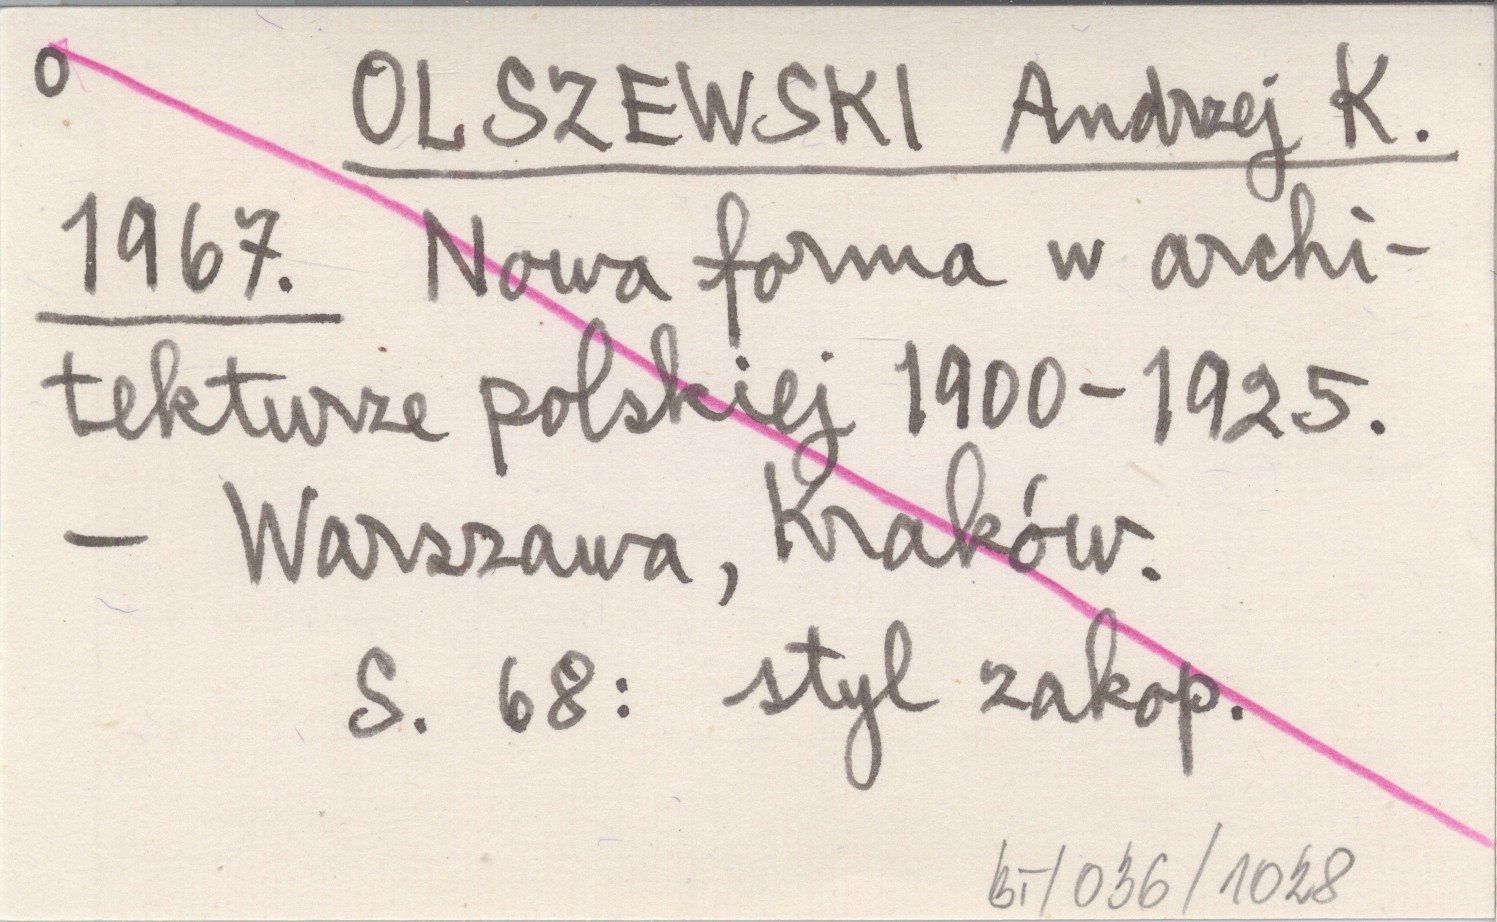 o OLSZEWSKI Andrzej K.
1967. Nowa forma w archi-
tekturze polskiej 1900-1925.
- Warszawa, Kraków.
S. 68: styl zakop.
/036/1028